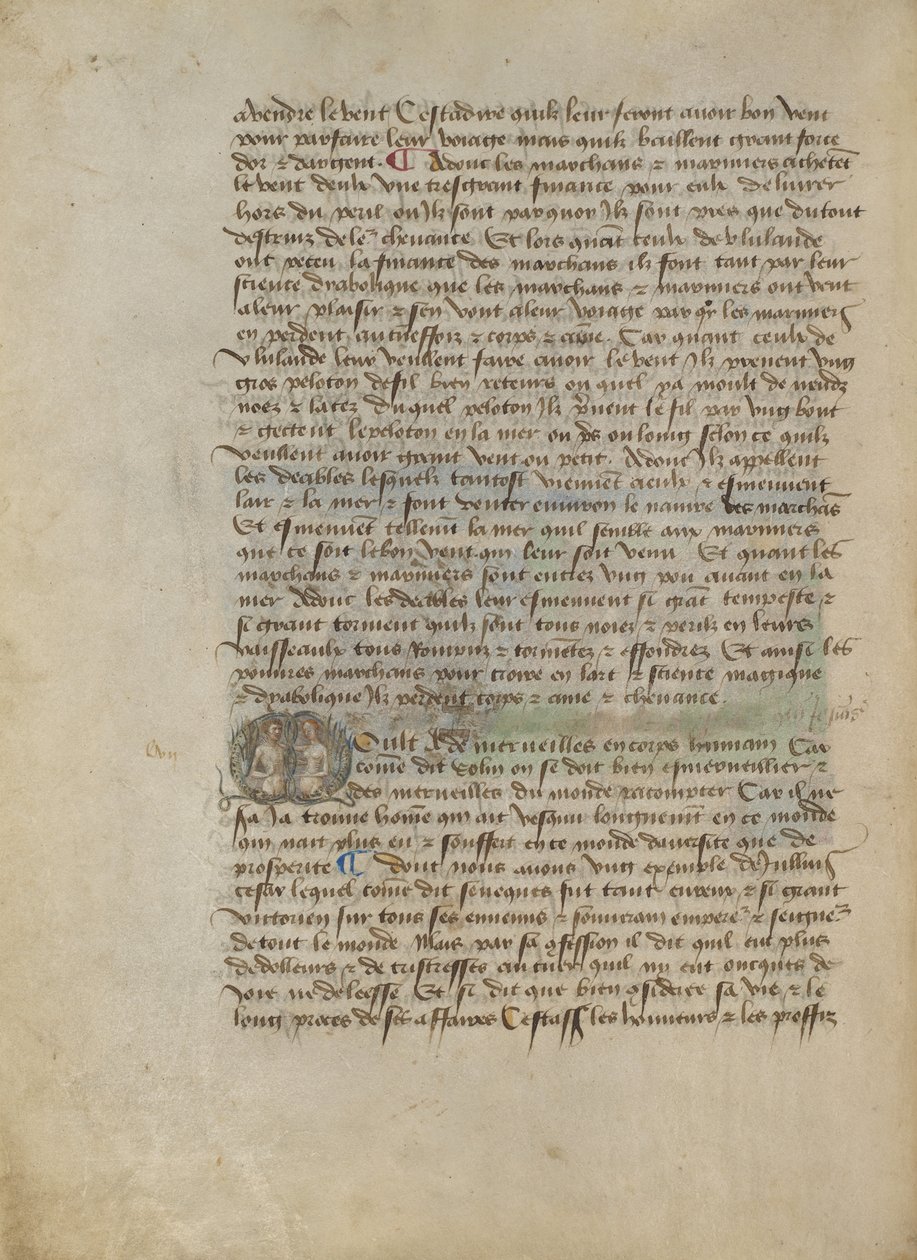 a vendre le vent Cestadire quilz leur feront avoir bon vent
pour parfaire leur voiage mais quilz baillent grant force
dor ⁊ dargent. ¶ Adonc les marchans ⁊ mariniers achetẽt
le vent deulx vne tresgrant finance pour eulx deliurer
hors du peril ou Ilz sont par quoy Ilz sont pres que du tout
destruiz de leᷣ cheuance Et lors quãt ceulx de vlulande
ont receu la finance des marchans ilz font tant par leur
science dyabolique que les marchans ⁊ mariniers ont vent
a leur plaisir ⁊ sen vont a leur voiage par qy les mariniers
en perdent aucũeffoiz ⁊ corps ⁊ ame. Car quant ceulx de
vlulande leur veullent faire auoir le vent Ilz prenent vng
gros peloton de fil bien reteurs ou quel ya moult de neudz
noez ⁊ latez Du quel peloton Ilz p̃nent le fil par vng bout
⁊ gectent le peloton en la mer ou ps ou loing selon ce quilz
veullent auoir grant vent ou petit. Adonc Ilz appellent
les deables lesquelz tantost viennẽt a eulx ⁊ esmeuuent
lair ⁊ la mer ⁊ font venter enuiron le nauire des marchãs
Et esmeuuẽt tellemẽt la mer quil semble aux mariniers
que ce soit le bon vent qui leur soit venu Et quant les
marchans ⁊ mariniers sont entrez vng pou auant en la
mer Adonc les deables leur esmeuuent si grãt tempeste ⁊
si grant torment quilz sõnt tous noiez ⁊ periz en leurs
vaisseaulx tous Rompuz ⁊ tormẽtez ⁊ effondrez Et ainsi les
poures marchans pour croire en lart ⁊ science magique
⁊ dyabolique Ilz perdent corps ⁊ ame ⁊ cheuance.
Oult A de merueilles en corps humain Car
cõme dit Solin on se doit bien esmerueillier ⁊
des merueilles du monde racompter Car il ne
sa Ja trouue hom̃e qui ait vesqui longuemẽt en ce monde
qui nait plus eu ⁊ souffert en ce monde dauersite que de
prosperite ¶ dont nous auons vng exemple de Jullius
cesar lequel cõme dit seneques fut tant eureux ⁊ si grant
victorien sur tous ses ennemis ⁊ souuerain empereᷣ ⁊ seigneᷣ
de tout le monde Mais par sa ꝯfession il dit quil eut plus
de dolleurs ⁊ de tristresses au cuer quil ny eut oncques de
Joie ne de leesse Et si dit que bien ꝯsideree sa vie ⁊ le
long proces de ses affaires Cestass̃ les honneurs ⁊ les proffiz